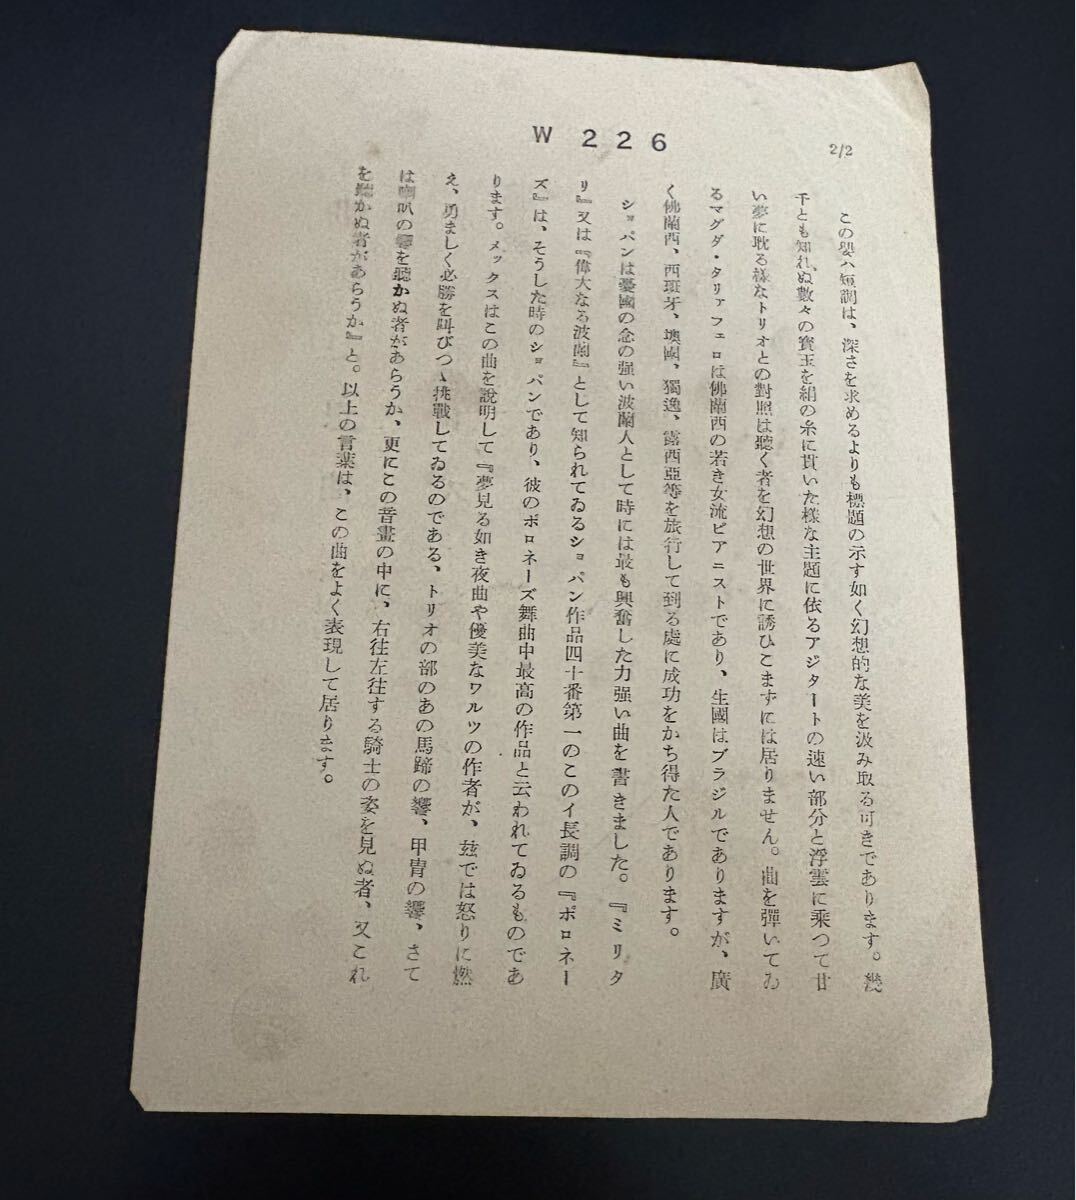 W 226
2/2
この嬰ハ短調は、深さを求めるよりも標題の示す如く幻想的な美を汲み取る可きであります。幾
千とも知れぬ數々の寶玉を絹の糸に貫いた樣な主題に依るアジタートの速い部分と浮雲に乘つて甘
い夢に耽る樣なトリオとの對照は聽く者を幻想の世界に誘ひこまずには居りません。曲を彈いてゐ
るマグダ・タリアフェロは佛蘭西の若き女流ピアニストであり、生國はブラジルでありますが、廣
く佛蘭西、西班牙、墺國、獨逸、露西亞等を旅行して到る處に成功をかち得た人であります。
ショパンは憂國の念の强い波蘭人として時には最も興奮した力强い曲を書きました。『ミリタ
リ』又は『偉大なる波蘭』として知られてゐるショパン作品四十番第一のこのイ長調の『ポロネー
ズ』は、そうした時のショパンであり、彼のポロネーズ舞曲中最高の作品と云われてゐるものであ
ります。メックスはこの曲を說明して『夢見る如き夜曲や優美なワルツの作者が、玆では怒りに燃
え、勇ましく必勝を叫びつゝ挑戰してゐるのである、トリオの部のあの馬蹄の響、甲冑の響、さて
は喇叭の響を聽かぬ者があらうか、更にこの音畫の中に、右往左往する騎士の姿を見ぬ者、又これ
を聽かぬ者があらうか』と。以上の言葉は、この曲をよく表現して居ります。